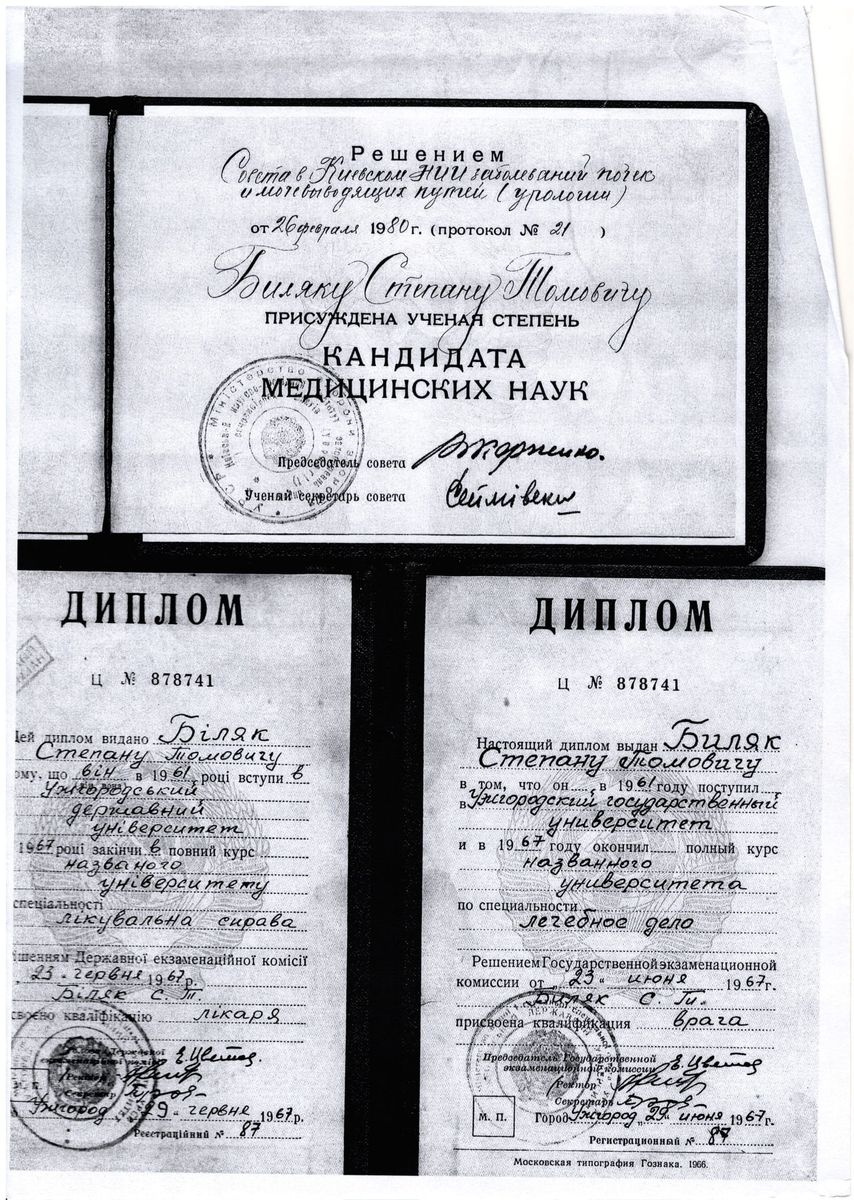 Решением
Совета в Киевском НИИ заболеваний почек
и мочевыводящих путей (урологии)
от 26 февраля 1980 г. (протокол № 21 )
Биляку Степану Томовичу
ПРИСУЖДЕНА УЧЕНАЯ СТЕПЕНЬ
КАНДИДАТА
МЕДИЦИНСКИХ НАУК
Председатель совета
Ученый секретарь совета
ДИПЛОМ
Ц № 878741
Цей диплом видано Біляк
Степану Томовичу
тому, що він в 1961 році вступи в
Ужгородський
державний
університет
1967 році закінчи в повний курс
названого
університету
спеціальності
лікувальна справа
рішенням Державної екзаменаційної комісії
„23" червня 1967 р.
Біляк С. Т.
присвоєно кваліфікацію лікаря
Державної
екзаменаційної комісії Е. Цветов
Ректор
Секретар
Ужгород „29" червня 1967 р.
Реєстраційний № 87
ДИПЛОМ
Ц № 878741
Настоящий диплом выдан Биляк
Степану Томовичу
в том, что он в 1961 году поступил
в Ужгородский государственный
университет
и в 1967 году окончил полный курс
названного
университета
по специальности
лечебное дело
Решением Государственной экзаменационной
комиссии от „23" июня 1967 г.
Биляк С. Т.
присвоена квалификация врача
Председатель Государственной
экзаменационной комиссии Е. Цветов
Ректор
Секретарь
М. П. Город Ужгород „29" июня 1967 г.
Регистрационный № 87
Московская типография Гознака. 1966.